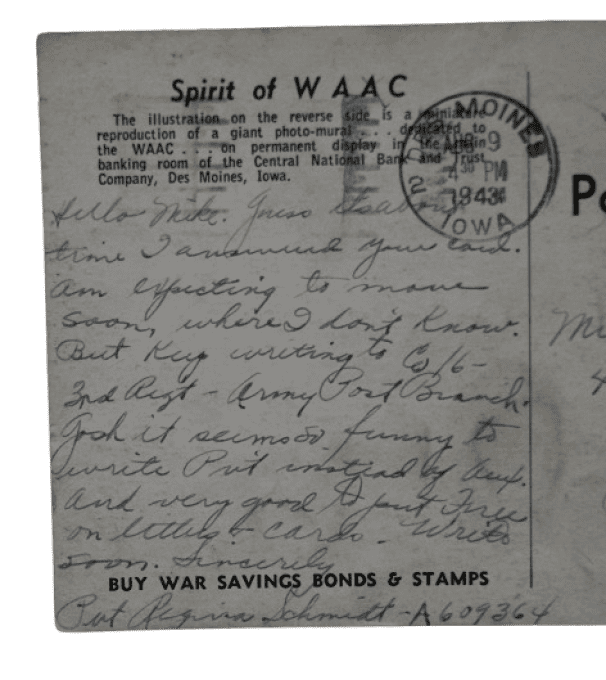 Spirit of WAAC
The illustration on the reverse side is a miniature
reproduction of a giant photo-mural . . . dedicated to
the WAAC . . . on permanent display in the main
banking room of the Central National Bank and Trust
Company, Des Moines, Iowa.
DES MOINES
9
2
4 30 PM
1943
IOWA
Po
Hello Mike. Guess its about
time I answered your card.
am expecting to move
soon, where I don't know.
But Keep writing to Co 16-
3rd Regt - Army Post Branch.
Gosh it seems so funny to
write Pvt instead of Aux.
And very good to put Free
on letters + cards. Write
soon. Sincerely
BUY WAR SAVINGS BONDS & STAMPS
Pvt Regina Schmidt - A609364
Mi
4